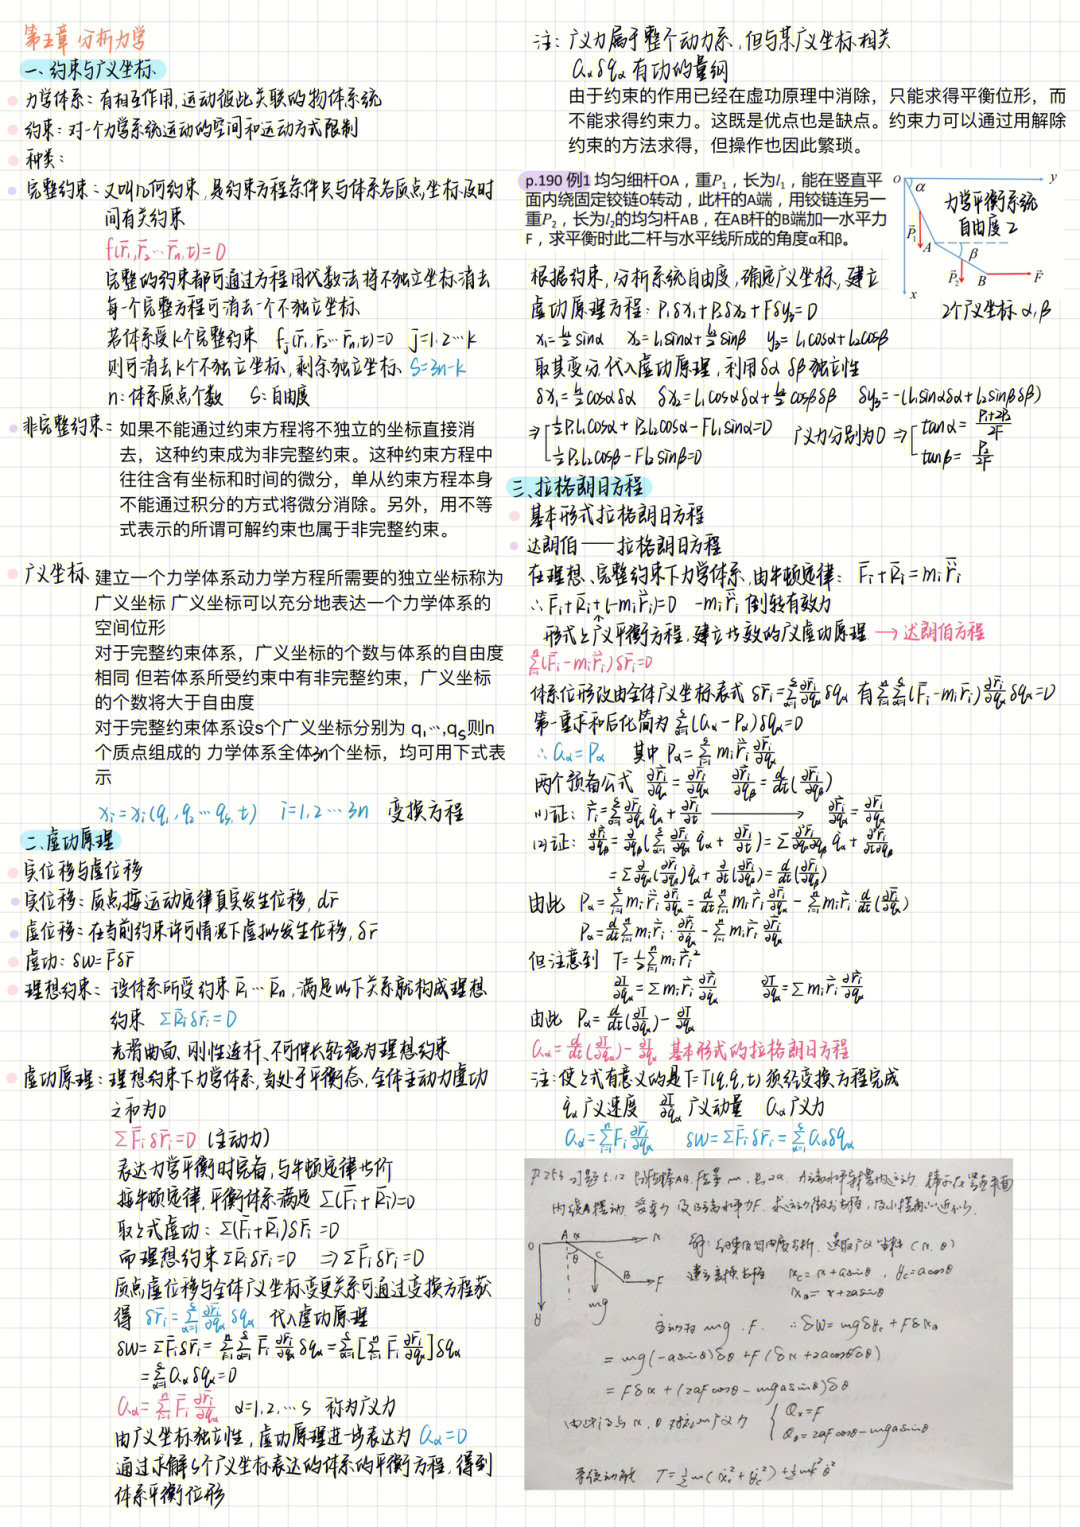 第五章 分析力学
一、约束与广义坐标
力学体系：有相互作用,运动彼此关联的物体系统
约束：对一个力学系统运动的空间和运动方式限制
种类：
完整约束：又叫几何约束,是约束方程条件只与体系各质点坐标及时
间有关约束
f(r̄₁,r̄₂…r̄n,t)=0
完整的约束都可通过方程用代数法将不独立坐标消去
每一个完整方程可消去一个不独立坐标
若体系受k个完整约束 fj(r̄₁,r̄₂…r̄n,t)=0 j=1,2…k
则可消去k个不独立坐标,剩余独立坐标 S=3n-k
n:体系质点个数 S:自由度
非完整约束：如果不能通过约束方程将不独立的坐标直接消
去，这种约束成为非完整约束。这种约束方程中
往往含有坐标和时间的微分，单从约束方程本身
不能通过积分的方式将微分消除。另外，用不等
式表示的所谓可解约束也属于非完整约束。
广义坐标 建立一个力学体系动力学方程所需要的独立坐标称为
广义坐标 广义坐标可以充分地表达一个力学体系的
空间位形
对于完整约束体系，广义坐标的个数与体系的自由度
相同 但若体系所受约束中有非完整约束，广义坐标
的个数将大于自由度
对于完整约束体系设s个广义坐标分别为 q₁,…,qs则n
个质点组成的 力学体系全体3n个坐标，均可用下式表
示
xi=xi(q₁,q₂…qs,t) i=1,2…3n 变换方程
二、虚功原理
实位移与虚位移
实位移：质点按运动定律真实发生位移,dr̄
虚位移：在当前约束许可情况下虚拟发生位移,δr̄
虚功：δW=F̄δr̄
理想约束：设体系所受约束 R̄₁…R̄n,满足以下关系就构成理想
约束 ΣR̄iδr̄i=0
光滑曲面、刚性连杆、不可伸长轻绳为理想约束
虚功原理：理想约束下力学体系,当处于平衡态,全体主动力虚功
之和为0
ΣF̄iδr̄i=0 (主动力)
表达力学平衡时完备,与牛顿定律等价
按牛顿定律,平衡体系满足 Σ(F̄i+R̄i)=0
取上式虚功：Σ(F̄i+R̄i)δr̄i=0
而理想约束ΣR̄iδr̄i=0 ⇒ΣF̄iδr̄i=0
质点虚位移与全体广义坐标变更关系可通过变换方程获
得 δr̄i=Σ(α=1→s) ∂r̄i/∂qα δqα 代入虚功原理
δW=ΣF̄iδr̄i=ΣΣF̄i ∂r̄i/∂qα δqα=Σ[ΣF̄i ∂r̄i/∂qα]δqα
=ΣQαδqα=0
Qα=ΣF̄i ∂r̄i/∂qα α=1,2,…s 称为广义力
由广义坐标独立性,虚功原理进一步表达为 Qα=0
通过求解s个广义坐标表达的体系的平衡方程,得到
体系平衡位形
注：广义力属于整个动力系,但与某广义坐标相关
Qαδqα有功的量纲
由于约束的作用已经在虚功原理中消除，只能求得平衡位形，而
不能求得约束力。这既是优点也是缺点。约束力可以通过用解除
约束的方法求得，但操作也因此繁琐。
p.190 例1 均匀细杆OA，重P₁，长为l₁，能在竖直平
面内绕固定铰链O转动，此杆的A端，用铰链连另一
重P₂，长为l₂的均匀杆AB，在AB杆的B端加一水平力
F，求平衡时此二杆与水平线所成的角度α和β。
O α y
力学平衡系统
自由度 2
P̄₁ A β
P̄₂ B F̄
x
2个广义坐标 α,β
根据约束,分析系统自由度,确定广义坐标,建立
虚功原理方程：P₁δx₁+P₂δx₂+Fδy₃=0
x₁=l₁/2 sinα x₂=l₁sinα+l₂/2 sinβ y₃=l₁cosα+l₂cosβ
取其变分,代入虚功原理,利用δα δβ独立性
δx₁=l₁/2 cosαδα δx₂=l₁cosαδα+l₂/2 cosβδβ δy₃=-(l₁sinαδα+l₂sinβδβ)
⇒[½P₁l₁cosα+P₂l₁cosα-Fl₁sinα=0 广义力分别为0 ⇒[tanα=(P₁+2P₂)/2F
½P₂l₂cosβ-Fl₂sinβ=0 tanβ=P₂/2F
三、拉格朗日方程
基本形式拉格朗日方程
达朗伯——拉格朗日方程
在理想、完整约束下力学体系,由牛顿定律： F̄i+R̄i=mi r̈i
∴F̄i+R̄i+(-mi r̈i)=0 -mi r̈i 倒转有效力
形式上广义平衡方程,建立等效的广义虚功原理→达朗伯方程
Σ(F̄i-mi r̈i)δr̄i=0
体系位形改由全体广义坐标表式 δr̄i=Σ ∂r̄i/∂qα δqα 有ΣΣ(F̄i-mi r̈i)∂r̄i/∂qα δqα=0
第一重求和后化简为 Σ(Qα-Pα)δqα=0
∴Qα=Pα 其中 Pα=Σ mi r̈i ∂r̄i/∂qα
两个预备公式 ∂ṙi/∂q̇α=∂r̄i/∂qα ∂ṙi/∂qβ=d/dt(∂r̄i/∂qβ)
(1)证：ṙi=Σ ∂r̄i/∂qα q̇α+∂r̄i/∂t → ∂ṙi/∂q̇α=∂r̄i/∂qα
(2)证：∂ṙi/∂qβ=∂/∂qβ(Σ ∂r̄i/∂qα q̇α+∂r̄i/∂t)=Σ ∂²r̄i/∂qα∂qβ q̇α+∂²r̄i/∂t∂qβ
=Σ ∂/∂qα(∂r̄i/∂qβ)q̇α+∂/∂t(∂r̄i/∂qβ)=d/dt(∂r̄i/∂qβ)
由此 Pα=Σ mi r̈i ∂r̄i/∂qα=d/dt Σ mi ṙi ∂r̄i/∂qα-Σ mi ṙi·d/dt(∂r̄i/∂qα)
Pα=d/dt Σ mi ṙi·∂ṙi/∂q̇α-Σ mi ṙi ∂ṙi/∂qα
但注意到 T=½Σ mi ṙi²
∂T/∂q̇α=Σ mi ṙi ∂ṙi/∂q̇α ∂T/∂qα=Σ mi ṙi ∂ṙi/∂qα
由此 Pα=d/dt(∂T/∂q̇α)-∂T/∂qα
Qα=d/dt(∂T/∂q̇α)-∂T/∂qα 基本形式的拉格朗日方程
注：使上式有意义的是T=T(q,q̇,t)须经变换方程完成
q̇α 广义速度 ∂T/∂q̇α 广义动量 Qα广义力
Qα=ΣFi ∂r̄i/∂qα δW=ΣF̄iδr̄i=ΣQαδqα
P.253 习题5.12 均匀棒AB,质量m,长2a
内绕A摆动
O A x
θ C
B F
mg
y
解：
建立变换方程 xc=x+asinθ , yc=acosθ
xB=x+2asinθ
主动力 mg,F. ∴δW=mgδyc+FδxB
=mg(-asinθ)δθ+F(δx+2acosθδθ)
=Fδx+(2aFcosθ-mgasinθ)δθ
由此得与x,θ对应的广义力 {Qx=F
Qθ=2aFcosθ-mgasinθ
系统动能 T=½m(ẋc²+ẏc²)+½mk²θ̇²